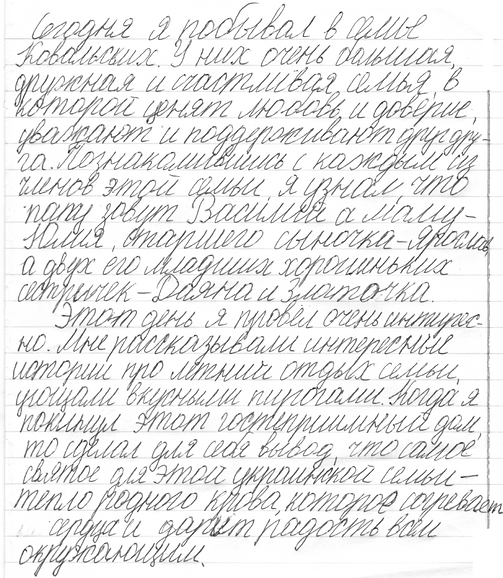 Сегодня я побывал в семье
Ковальских. У них очень большая,
дружная и счастливая семья, в
которой ценят любовь и доверие,
уважают и поддерживают друг дру-
га. Познакомившись с каждым из
членов этой семьи, я узнал, что
папу зовут Василий, а маму-
Юлия, старшего сыночка-Ярослав,
а двух его младших хорошеньких
сестричек-Даяна и Златочка.
Этот день я провёл очень интерес-
но. Мне рассказывали интересные
истории про летний отдых семьи,
угощали вкусными пирогами. Когда я
покинул этот гостеприимный дом
то сделал для себя вывод, что самое
святое для этой украинской семьи-
тепло родного крова, которое согревает
сердца и дарит радость всем
окружающим.